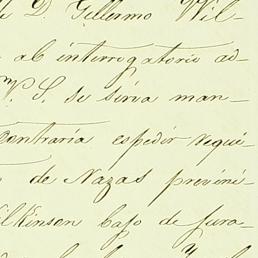 D. Gillermo Wil-
al interrogatorio ad-
V. S. se sirva man-
contraria espedir requi-
de Nazas previni-
ilkinson bajo de jura-